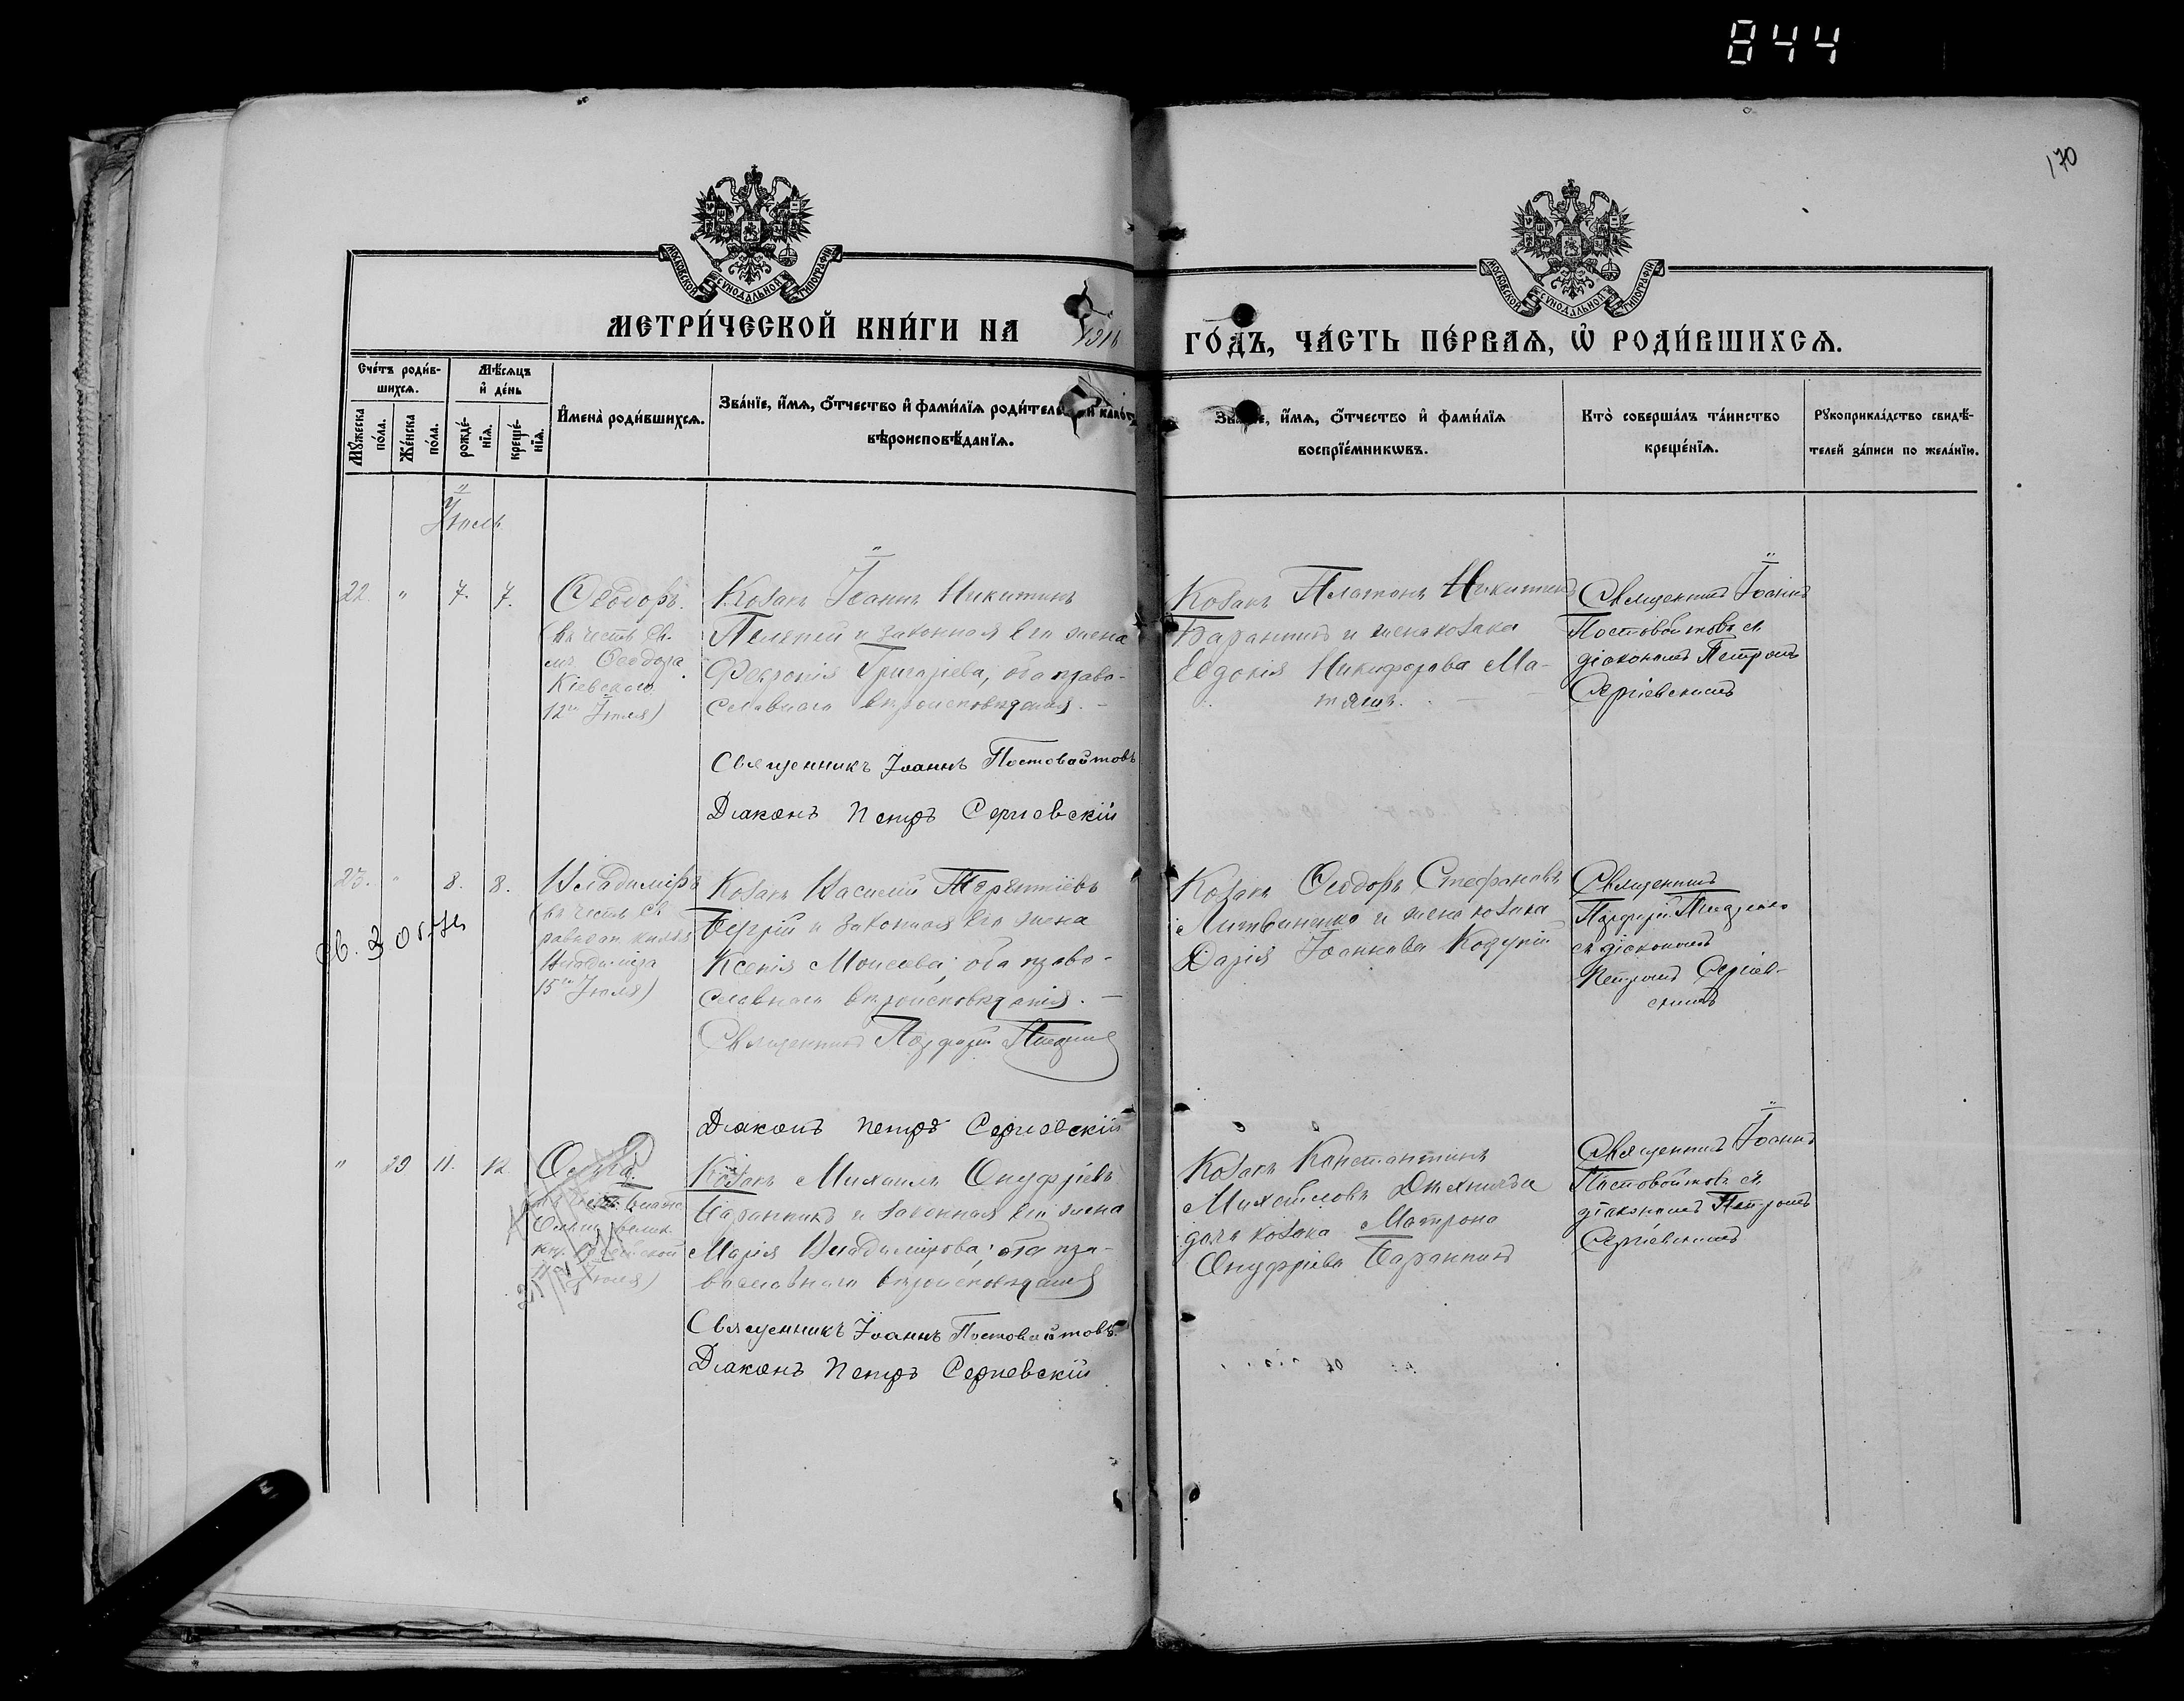 844
170
МОСКОВСКОЙ СѴНОДАЛЬНОЙ ТИПОГРАФІИ
МОСКОВСКОЙ СѴНОДАЛЬНОЙ ТИПОГРАФІИ
МЕТРИ́ЧЕСКОЙ КНИ́ГИ НА 1916
ГО́ДЪ, ЧА́СТЬ ПЕ́РВАѦ, Ѡ҆ РОДИ́ВШИХСѦ.
Сче́тъ роди́в-
шихсѧ.
Мꙋжеска
по́ла.
Же́нска
по́ла.
Мѣ́сѧцъ
и҆ де́нь
рожде́-
нїѧ.
креще́-
нїѧ.
И҆мена̀ роди́вшихсѧ.
Зва́нїе, и҆́мѧ, ѻ҆́тчество и҆ фами́лїѧ роди́теле
вѣроисповѣ́данїѧ.
и҆́мѧ, ѻ҆́тчество и҆ фами́лїѧ
воспрїе́мникѡвъ.
Кто̀ соверша́лъ та́инство
креще́нїѧ.
Рꙋкоприкла́дство свидѣ́-
телей за́писи по жела́нїю.
Іюль
22. " 7. 7.
Ѳеодоръ.
(въ честь св.
мч. Ѳеодора
Кіевскаго
12го Іюля)
Козакъ Іоаннъ Никитинъ
и законная его жена
Февронія Григоріева, оба право-
славнаго вѣроисповѣданія. –
Священникъ Іоаннъ Постовойтовъ
Діаконъ Петръ Сергіевскій
Козакъ Платонъ Никитинъ
и жена козака
Евдокія Никифорова Ма-
Священникъ Іоаннъ
Постовойтовъ съ
діакономъ Петромъ
Сергіевскимъ
23. " 8. 8.
Владиміръ
(въ честь св.
равноап. князя
Владиміра
15го Іюля)
Козакъ Василій Терентіевъ
и законная его жена
Ксенія Моисеева; оба право-
славнаго вѣроисповѣданія. –
Священникъ
Діаконъ Петръ Сергіевскій
Козакъ Ѳеодоръ Стефановъ
Литвиненко и жена козака
Дарія Іоаннова
Священникъ
съ діакономъ
Петромъ Сергіев-
скимъ
" 29 11. 12
Ольга.
Козакъ Михаилъ Онуфріевъ
и законная его жена
Марія Владимірова; оба пра-
вославнаго вѣроисповѣданія
Священникъ Іоаннъ Постовойтовъ
Діаконъ Петръ Сергіевскій
Козакъ Константинъ
Михайловъ
дочь козака Матрона
Онуфріева
Священникъ Іоаннъ
Постовойтовъ съ
діакономъ Петромъ
Сергіевскимъ